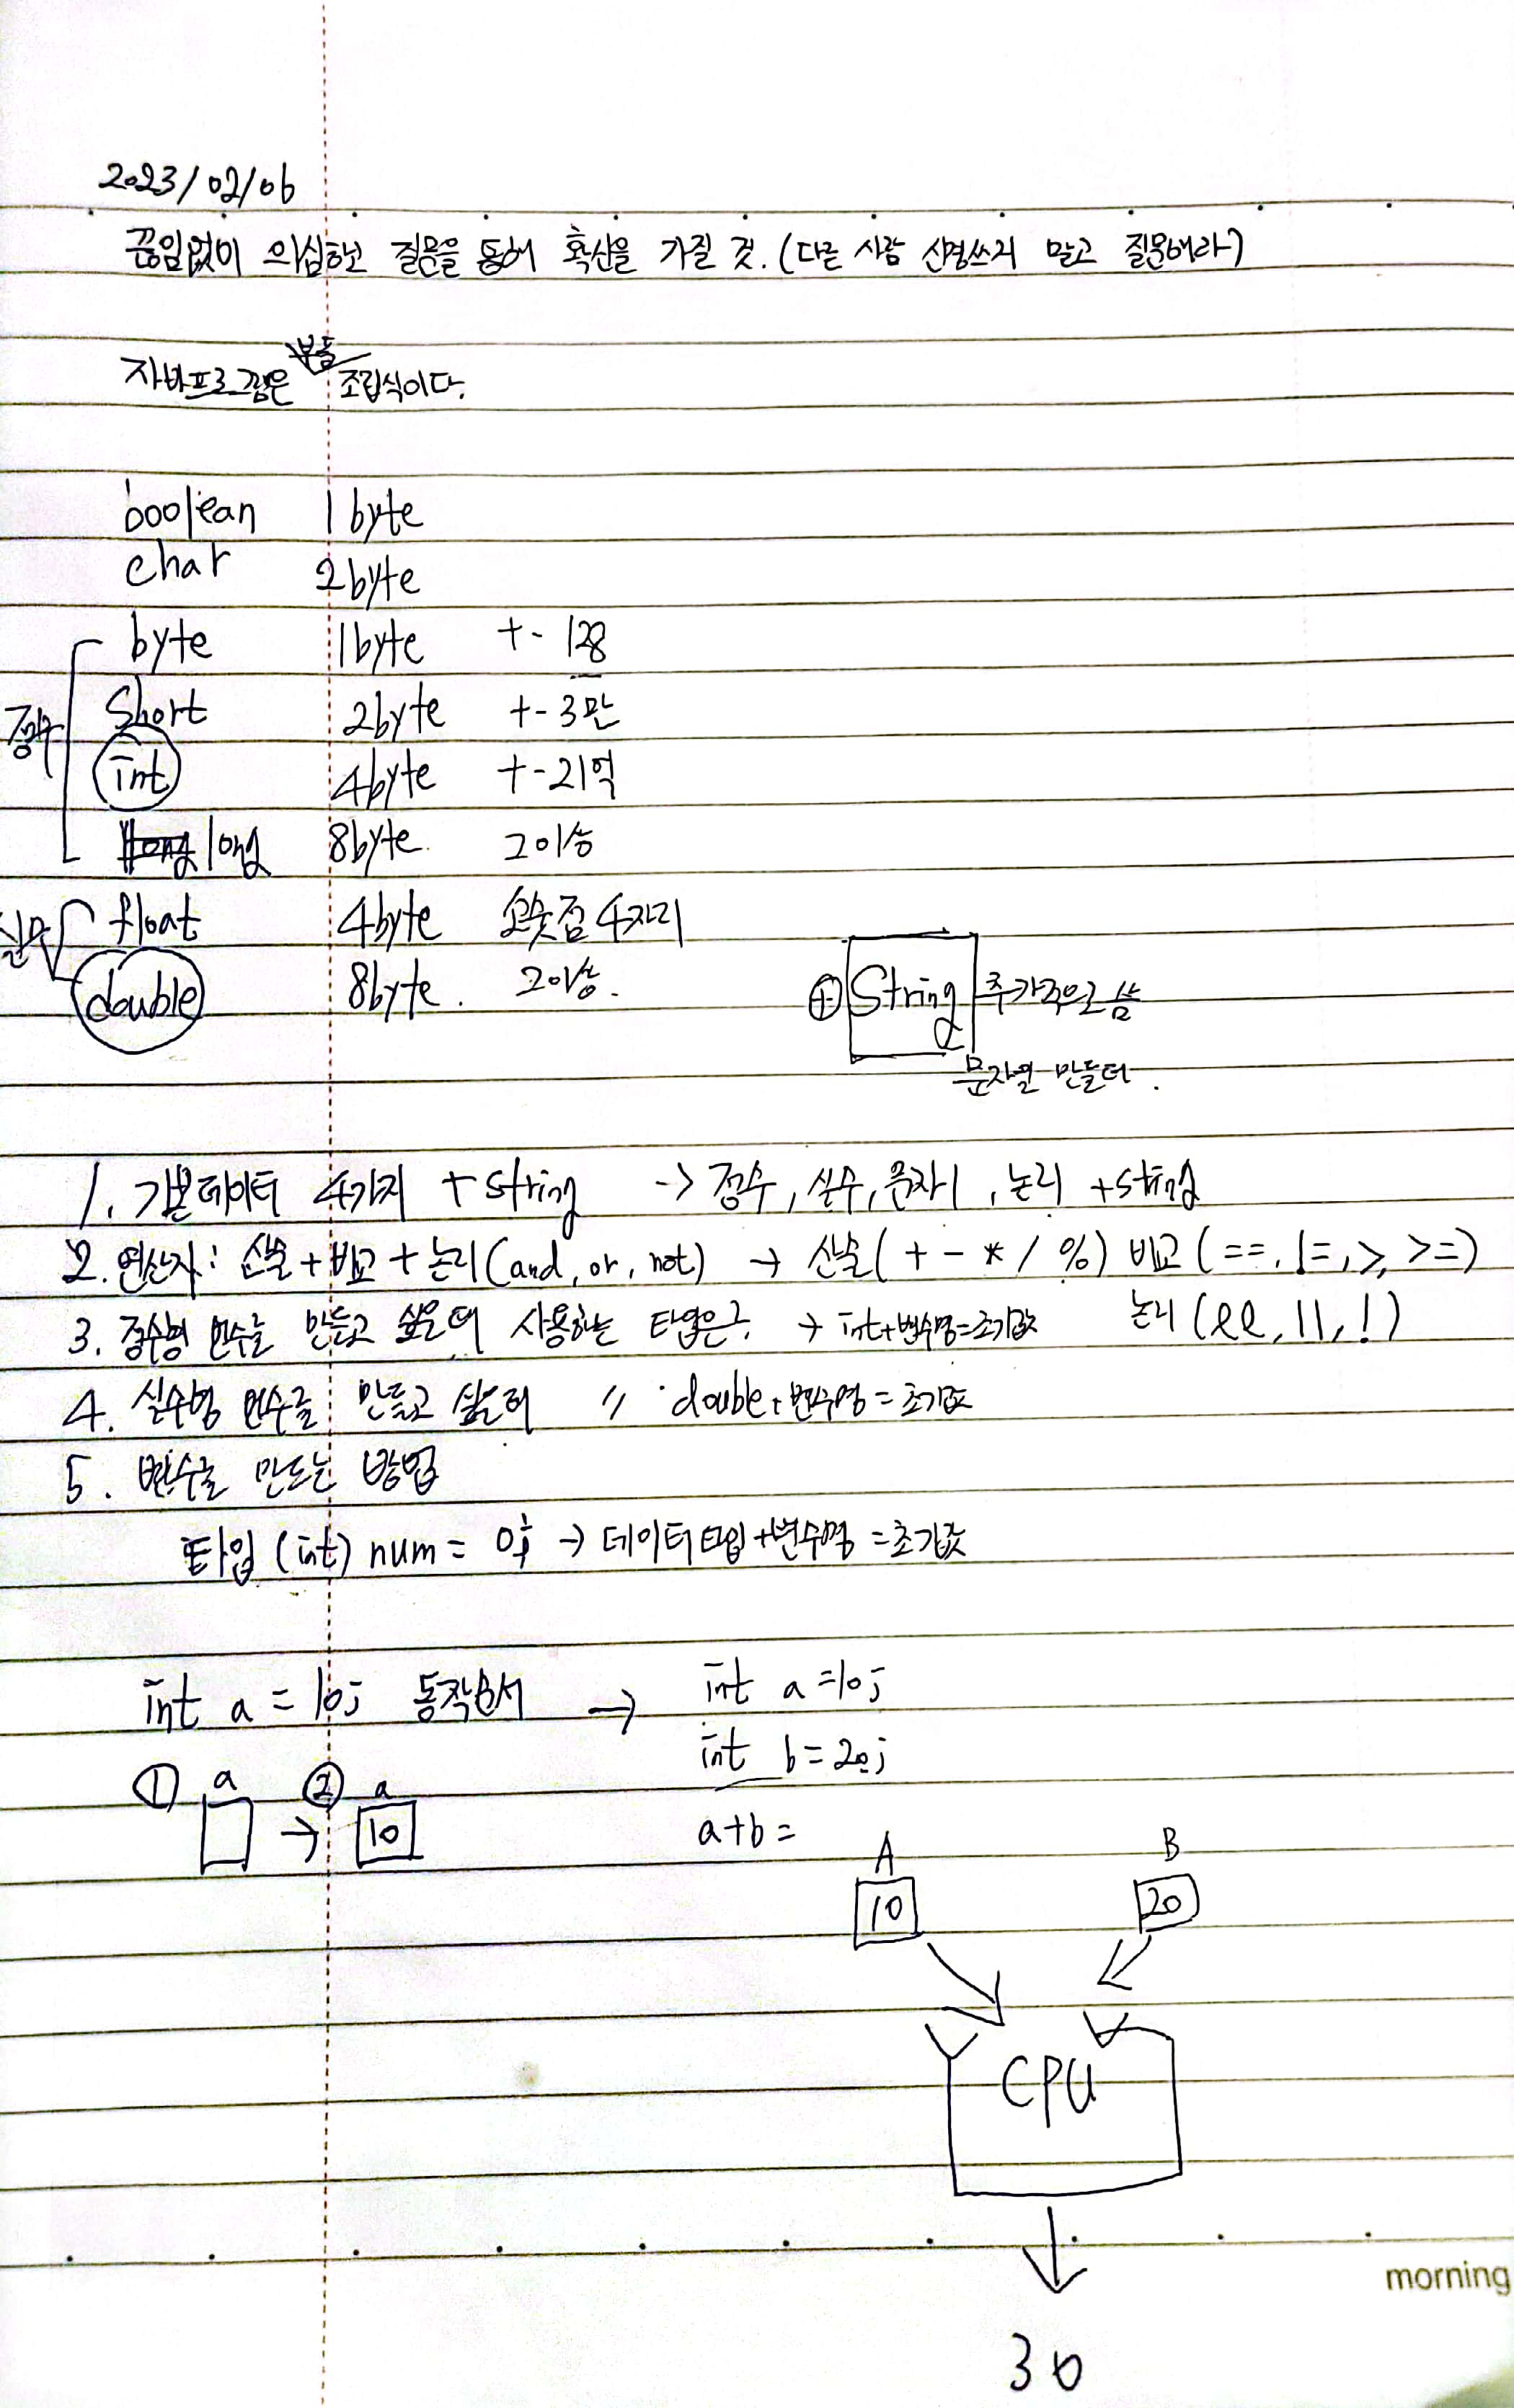 2023/02/06
끊임없이 의심하고 질문을 통해 확신을 가질 것. (다른 사람 신경쓰지 말고 질문해라)
부품
자바프로그램은 조립식이다.
boolean 1byte
char 2byte
정수
byte 1byte +- 128
short 2byte +- 3만
int 4byte +- 21억
long 8byte 그이상
실수
float 4byte 소숫점 4자리
double 8byte. 그이상.
+ String 추가적으로 씀
문자열 만들때.
1. 기본데이터 4가지 + string -> 정수, 실수, 문자1, 논리 + string
2. 연산자: 산술 + 비교 + 논리 (and, or, not) → 산술 ( + - * / %) 비교 ( ==, !=, >, >=)
논리 (&&, ||, !)
3. 정수형 변수를 만들고 싶을때 사용하는 타입은? → int+변수명=초기값
4. 실수형 변수를 만들고 싶을때 〃 double+변수명=초기값
5. 변수를 만드는 방법
타입 (int) num = 0; → 데이터타입+변수명=초기값
int a = 10; 동작순서 → int a = 10;
int b = 20;
① a → ② a
10
a+b =
A B
10 20
CPU
30
morning